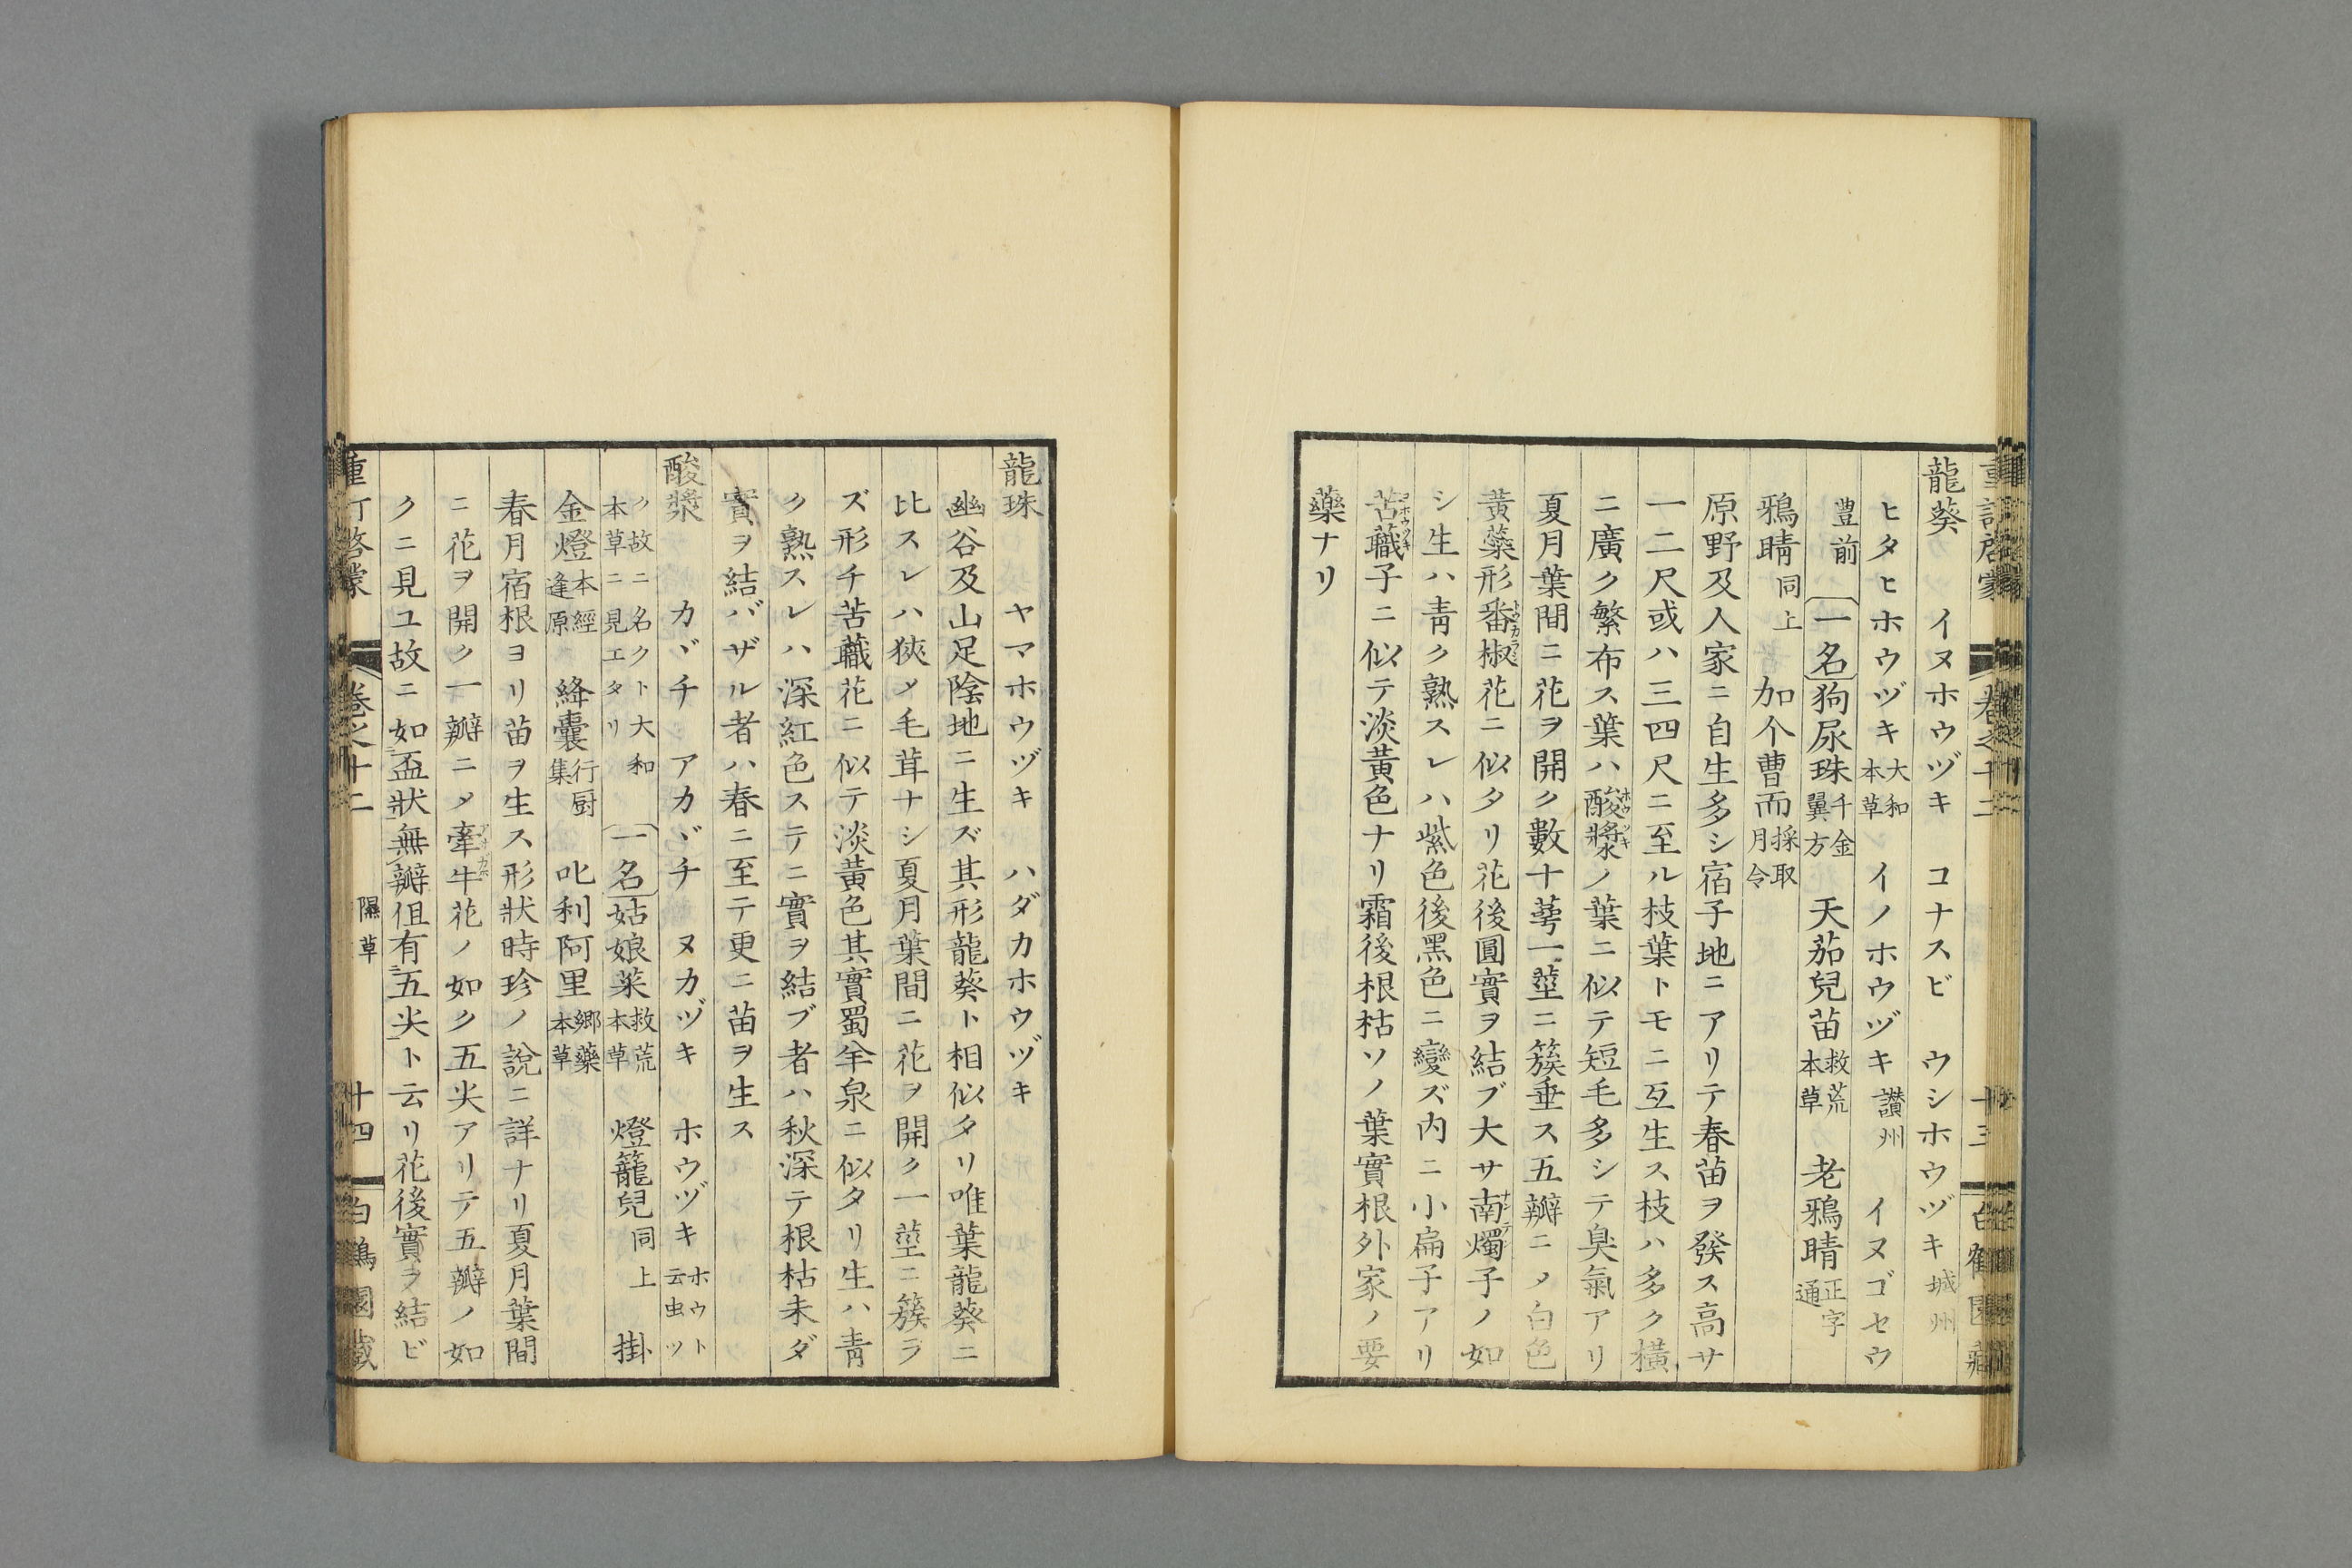 龍葵 イヌホウヅキ コナスビ ウシホウヅキ 城州
ヒタヒホウヅキ 大和本草 イノホウヅキ 讃州 イヌゴセウ
豊前 一名 狗尿珠 千金翼方 天茄兒苗 救荒本草 老鴉睛 正字通
鴉睛 同上 加个曹而 採取月令
原野及人家ニ自生多シ宿子地ニアリテ春苗ヲ發ス高サ
一二尺或ハ三四尺ニ至ル枝葉トモニ互生ス枝ハ多ク橫
ニ廣ク繁布ス葉ハ酸漿ノ葉ニ似テ短毛多シテ臭氣アリ
夏月葉間ニ花ヲ開ク數十萼一莖ニ簇垂ス五瓣ニメ白色
黃蘂形番椒花ニ似タリ花後圓實ヲ結ブ大サ南燭子ノ如
シ生ハ靑ク熟スレハ紫色後黑色ニ變ズ内ニ小扁子アリ
苦蘵子ニ似テ淡黃色ナリ霜後根枯ソノ葉實根外家ノ要
藥ナリ
龍珠 ヤマホウヅキ ハダカホウヅキ
幽谷及山足陰地ニ生ズ其形龍葵ト相似タリ唯葉龍葵ニ
比スレハ狹メ毛茸ナシ夏月葉間ニ花ヲ開ク一莖ニ簇ラ
ズ形チ苦蘵花ニ似テ淡黃色其實蜀羊泉ニ似タリ生ハ靑
ク熟スレハ深紅色ステニ實ヲ結ブ者ハ秋深テ根枯未ダ
實ヲ結バザル者ハ春ニ至テ更ニ苗ヲ生ス
酸漿 カヾチ アカヾチ ヌカヅキ ホウヅキ ホウト云虫ツ
ク故ニ名クト大和本草ニ見エタリ 一名 姑娘菜 救荒本草 燈籠兒 同上 掛
金燈 本經逢原 絳囊 行厨集 叱利阿里 郷藥本草
春月宿根ヨリ苗ヲ生ス形狀時珍ノ說ニ詳ナリ夏月葉間
ニ花ヲ開ク一瓣ニメ牽牛花ノ如ク五尖アリテ五瓣ノ如
クニ見ユ故ニ如盃狀無瓣但有五尖ト云リ花後實ヲ結ビ
卷之十二 隰草 十四